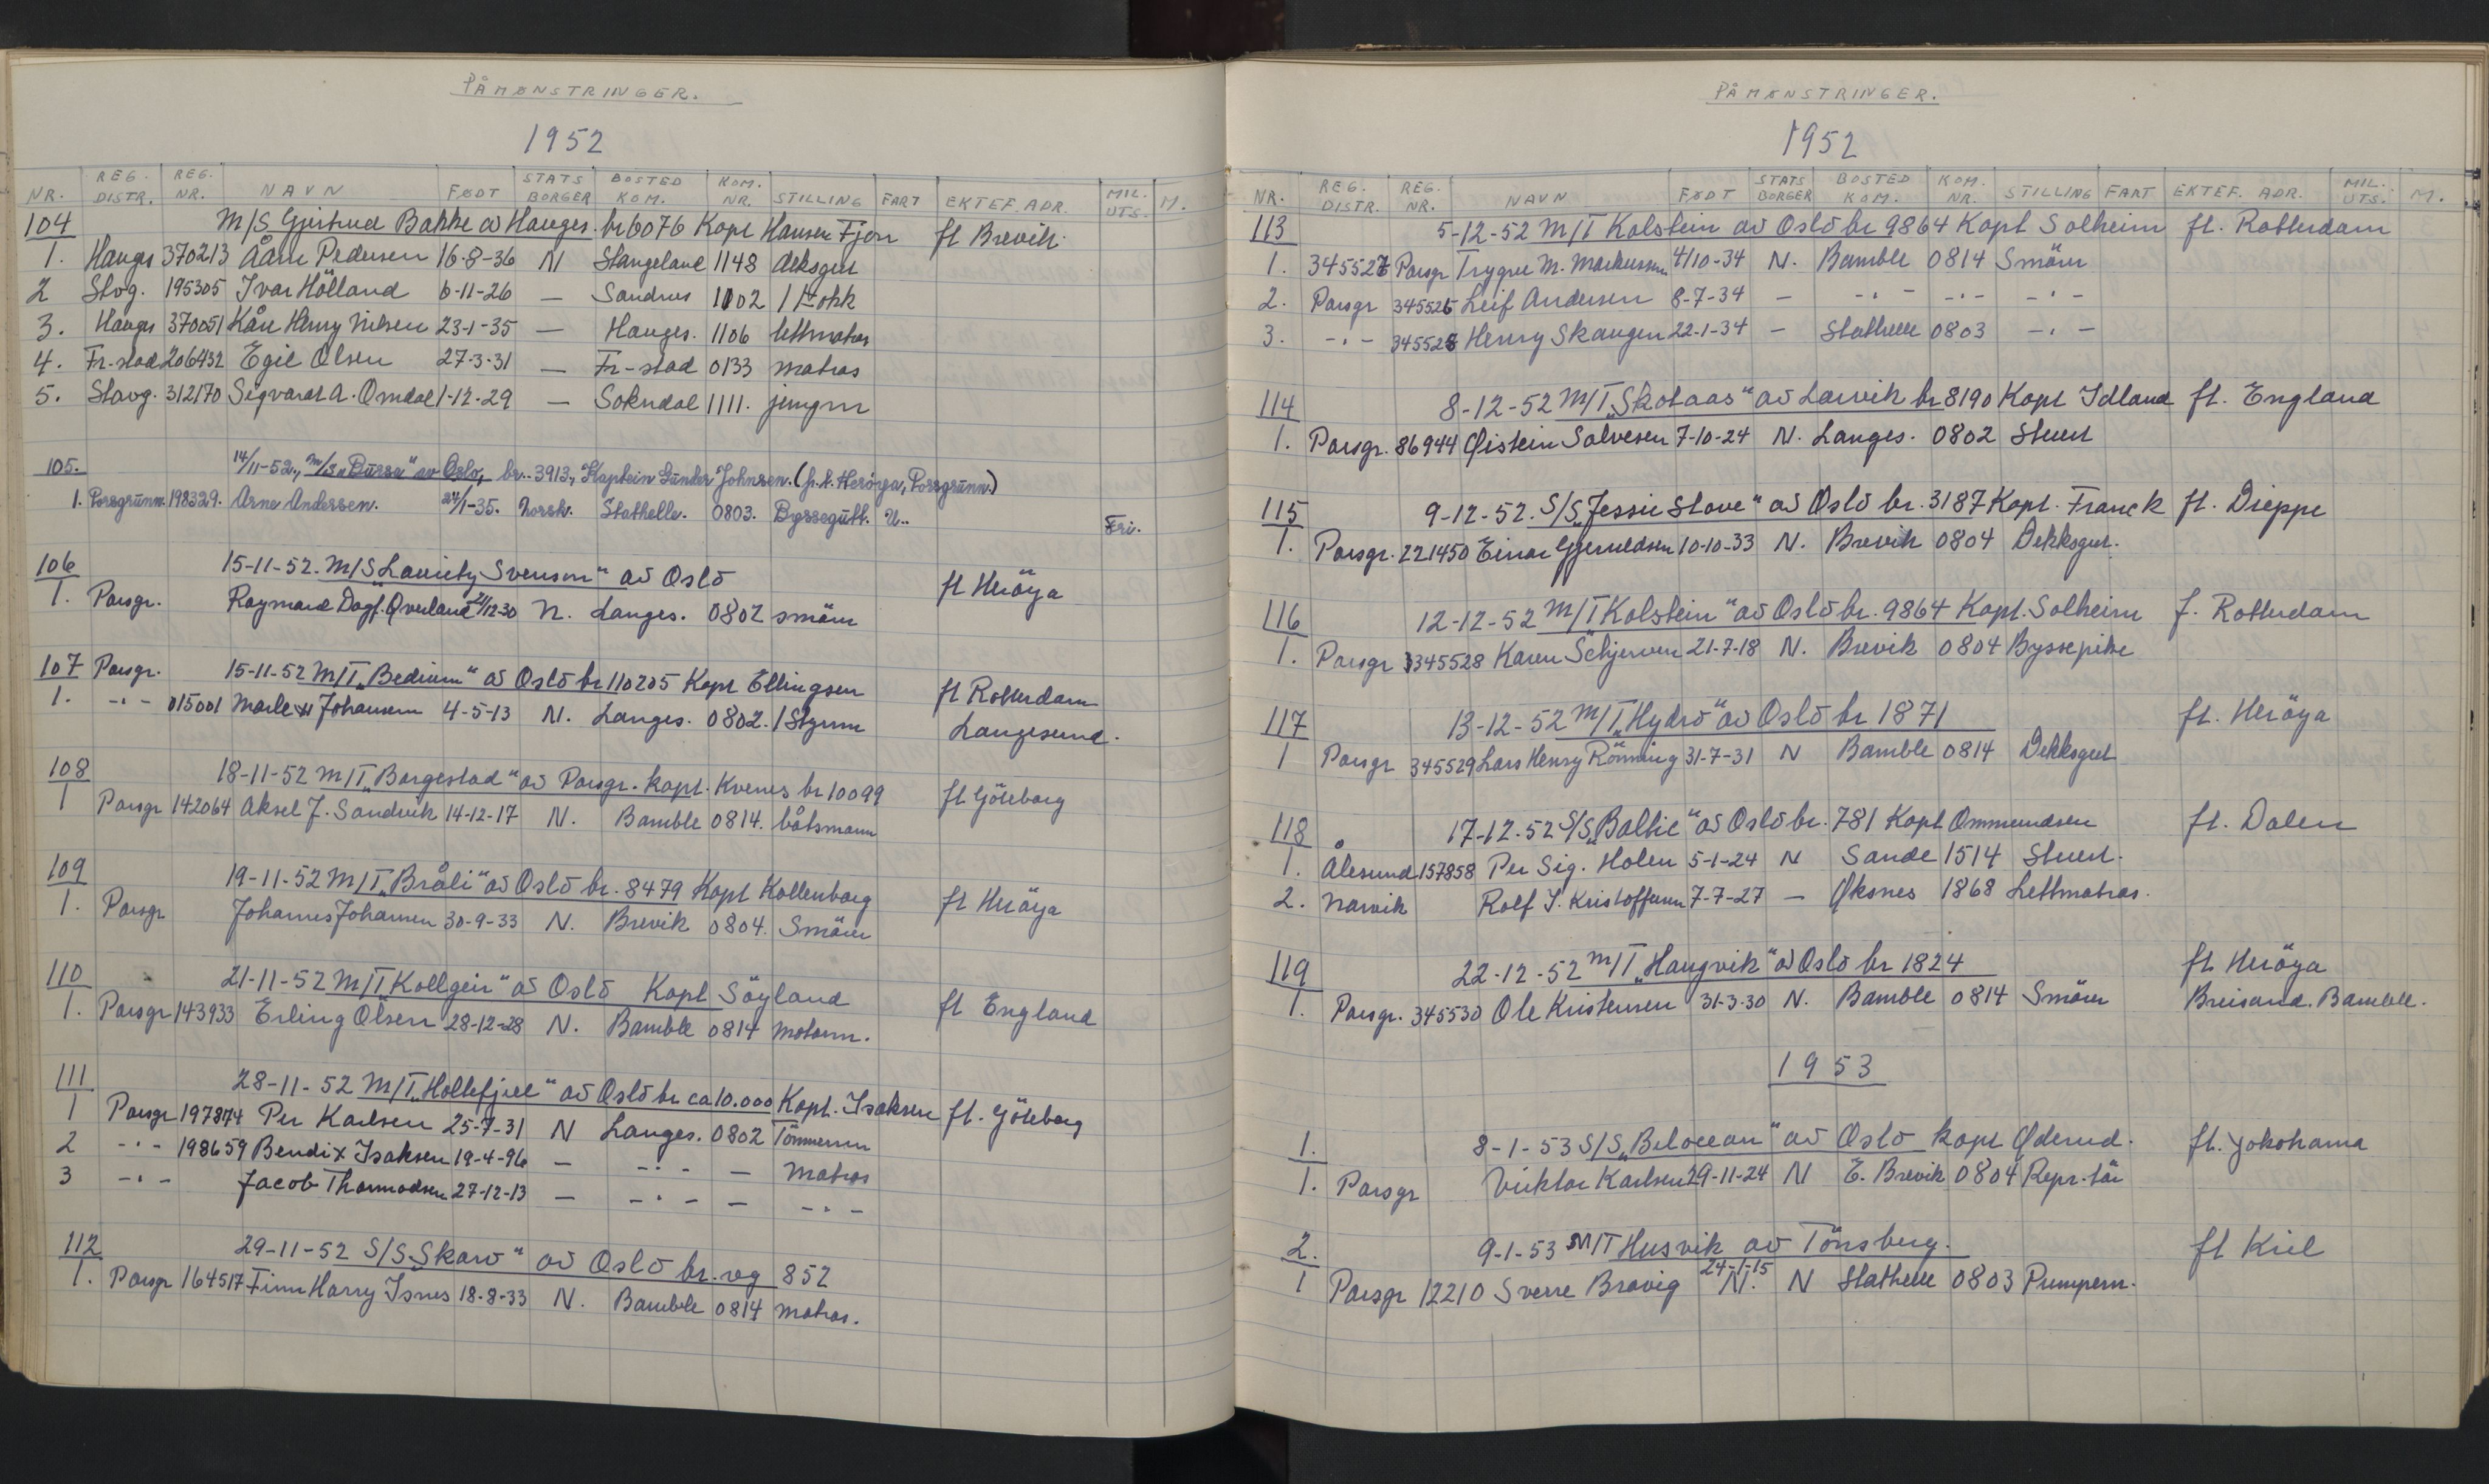 PÅMØNSTRINGER.
1952
NR. REG. DISTR. REG. NR. NAVN FØDT STATS BORGER BOSTED KOM. KOM. NR. STILLING FART EKTEF. ADR. MIL. UTS. M.
104 M/S Gjertrud Bakke av Hauges. br 6076 Kapt Hansen Fjon ft Brevik.
1. Hauges 370213 Åsm Pedersen 16-8-36 N Stangeland 1148 deksgut
2 Stvg. 195305 Ivar Hölland 6-11-26 — Sandnes 1102 1 St kokk
3. Hauges 370051 Kåre Henry Nilsen 23-1-35 — Hauges. 1106 lettmatros
4. Fr-stad 206432 Egil Olsen 27-3-31 — Fr-stad 0133 matros
5. Stavg. 312170 Sigvard A. Omdal 1-12-29 — Sokndal 1111. jungm
105. 14/11-52., M/S "Bürsa" av Oslo, br. 3913., Kaptein Günder Johnsen. (p.t. Heröya, Porsgrünn.)
1. Porsgrünn. 198329. Arne Andersen. 24/1-35. Norsk. Stathelle. 0803. Byssegütt. U.. Fri.
106 15-11-52. M/S "Lauritz Svenson" av Oslo ft Heröya
1. Porsgr. Raymond Dagf. Øverland 21/12-30 N. Langes. 0802 smörer
107 Porsgr. 15-11-52 M/T "Bedrium" av Oslo br 110205 Kapt Ellingsen ft Rotterdam
1. -"- 015001 Johansen 4-5-13 N. Langes. 0802. 1 Styrm Langesund.
108 18-11-52 M/T "Borgestad" av Porsgr. kapt. Kvenes br 10099 ft Göteborg
1 Porsgr 142064 Aksel J. Sandvik 14-12-17 N. Bamble 0814. båtsmann
109 19-11-52 M/T "Bråli" av Oslo br. 8479 Kapt Kollenborg ft Heröya
1. Porsgr Johannes Johansen 30-9-33 N. Brevik 0804. Smörer
110 21-11-52 M/T "Kollgeir" av Oslo Kapt Söyland ft England
1. Porsgr 143933 Erling Olsen 28-12-28 N. Bamble 0814 motorm.
111 28-11-52 M/T "Hollefjell" av Oslo br ca 10.000 Kapt. Isaksen ft. Göteborg
1 Porsgr 197874 Per Karlsen 25-7-31 N Langes. 0802 Tömmerm
2 -"- 198659 Bendix Isaksen 19-4-96 — -"- — Matros
3 -"- Jacob Thormodsen 27-12-13 — -"- — -"-
112 29-11-52 S/S "Skarv" av Oslo br. reg 852
1. Porsgr 164517 Finn Harry Isnes 18-8-33 N. Bamble 0814 matros.
PÅMØNSTRINGER.
1952
NR. REG. DISTR. REG. NR. NAVN FØDT STATS BORGER BOSTED KOM. KOM. NR. STILLING FART EKTEF. ADR. MIL. UTS. M.
113 5-12-52 M/T Kolstein av Oslo br 9864 Kapt Solheim ft. Rotterdam
1. 345527 Porsgr Trygve M. Markussen 4/10-34 N. Bamble 0814 Smörer
2. Porsgr 345526 Leif Andersen 8-7-34 — -"- -"- -"-
3. -"- 345528 Henry Skaugen 22-1-34 — Stathelle 0803 -"-
114 8-12-52 M/T "Skotaas" av Larvik br 8190 Kapt Idland ft. England
1. Porsgr. 86944 Øistein Salvesen 7-10-24 N. Langes. 0802 Stuert
115 9-12-52. S/S "Jessie Stove" av Oslo br. 3187 Kapt. Franck ft. Dieppe
1. Porsgr. 221450 Einar Gjeruldsen 10-10-33 N. Brevik 0804 Dekksgut.
116 12-12-52 M/T "Kolstein" av Oslo br. 9864 Kapt. Solheim f. Rotterdam
1. Porsgr 345528 Karen Schjerven 21-7-18 N. Brevik 0804 Byssepike
117 13-12-52 M/T "Hydro" av Oslo br 1871 ft. Heröya
1 Porsgr 345529 Lars Henry Rönning 31-7-31 N Bamble 0814 Dekksgut
118 17-12-52 S/S "Baltic" av Oslo br. 781 Kapt Ommundsen ft. Dalen
1. Ålesund 157858 Per Sig. Holen 5-1-24 N Sande 1514 Stuert.
2. Narvik Rolf J. Kristoffersen 7-7-27 — Øksnes 1868 Lettmatros.
119 22-12-52 M/T "Haugvik" av Oslo br 1824 ft Heröya
1. Porsgr. 345530 Ole Kristensen 31-3-30 N. Bamble 0814 Smörer Breisand. Bamble.
1953
1. 8-1-53 S/S "Belocean" av Oslo kapt Øderud. ft. Yokohama
1. Porsgr Viktor Karlsen 29-11-24 N E. Brevik 0804 Repr-tör
2. 9-1-53 M/T Husvik av Tönsberg. ft Kiel
1 Porsgr 12210 Sverre Bravig 24-1-15 N. N Stathelle 0803 Pumpem.